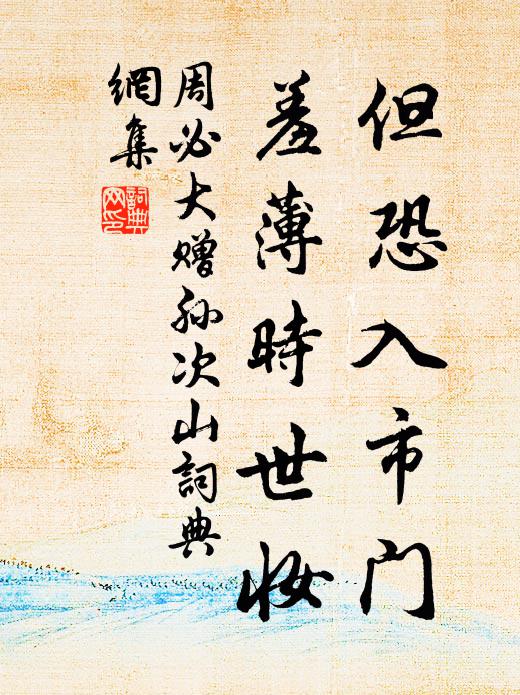 但恐入市门
羞薄時世妝
周必大赠孙次山詞典
網集
詞典
网印